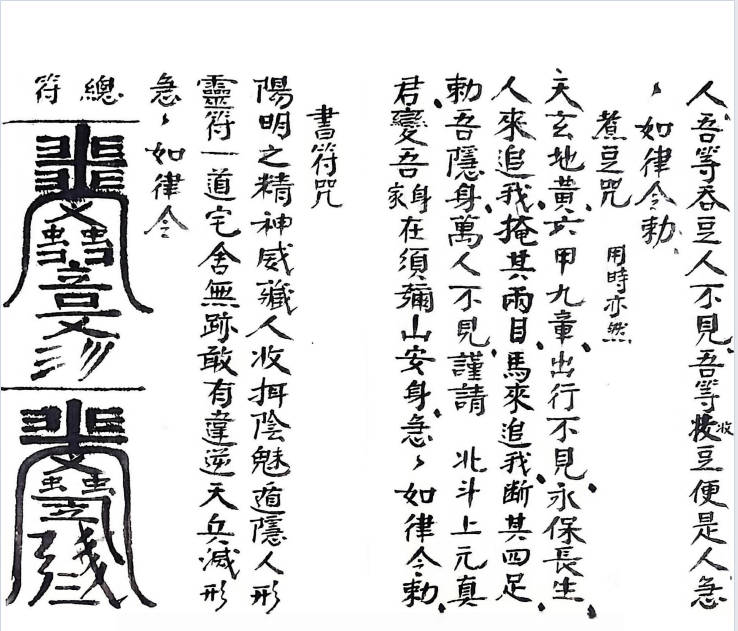 人、吾等吞豆人不見、吾等收豆便是人急
、如律令勅、
煮豆咒 用時亦然
天玄地黃、六甲九章、出行不見、永保長生、
人來追我、掩其兩目、馬來追我、斷其四足、
勅吾隱身、萬人不見、謹請 北斗上元真
君、變吾身家在須彌山安身、急、如律令勅、
書符咒
陽明之精神威藏人收 陰魅遁隱人形
靈符一道宅舍無跡敢有違逆天兵滅形
急、如律令
總符